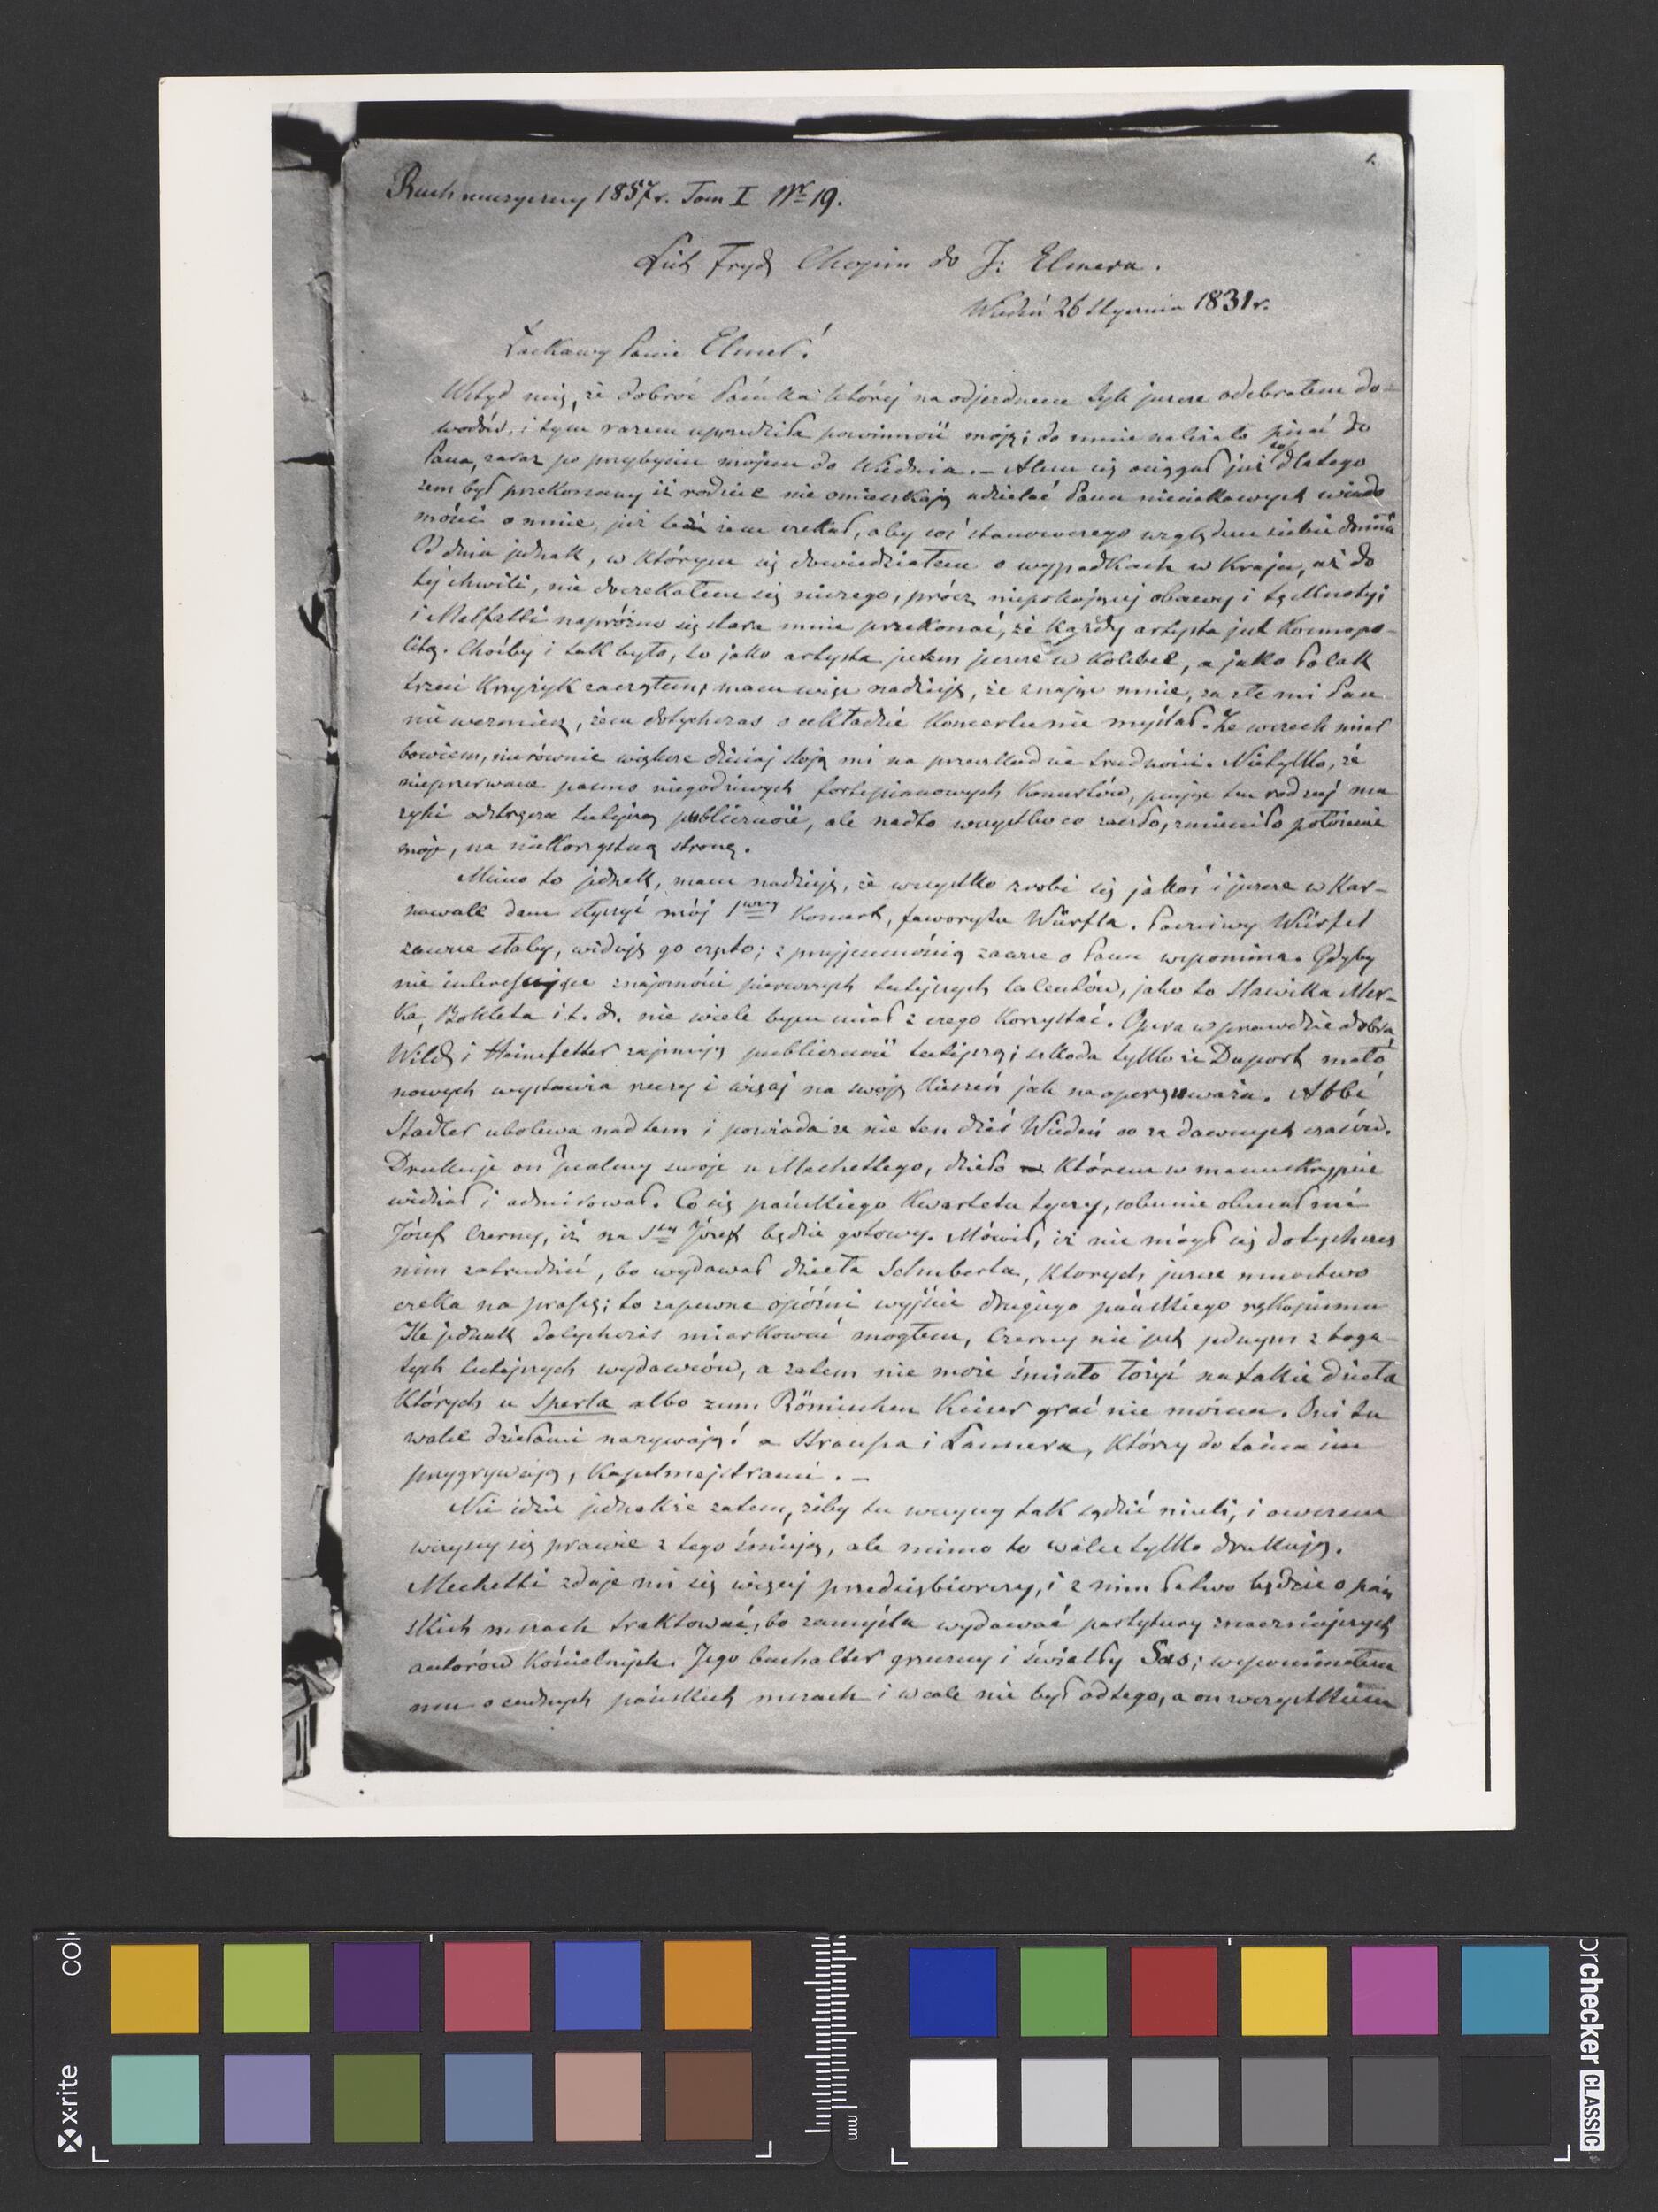 Ruch muzyczny 1857r. Tom I Nr 19.
1.
List Fryd Chopin do J: Elsnera.
Wiedeń 26 Stycznia 1831r.
Łaskawy Panie Elsner!
Wstyd mię, że dobroć Pańska której na odjezdnem tyle jeszcze odebrałem do-
wodów, i tym razem uprzedziła powinność moją; do mnie należało pisać do
Pana, zaraz po przybyciu mojem do Wiednia. – Alem się ociągał już to dlatego
żem był przekonany iż rodzice nie omieszkają udzielać Panu nieciekawych wiado
mości o mnie, już też żem czekał, aby coś stanowczego względem siebie donieść
Od dnia jednak, w którym się dowiedziałem o wypadkach w Kraju, aż do
tej chwili, nie doczekałem się niczego, prócz niepokojącej obawy i tęsknoty;
i Malfatti napróżno się stara mnie przekonać, że każdy artysta jest Kosmopo-
litą. Choćby i tak było, to jako artysta jestem jeszcze w kolebce, a jako Polak
trzeci Krzyżyk zacząłem; mam więc nadzieję, że znając mnie, za złe mi Pan
nie weźmiesz, żem dotychczas o układzie Koncertu nie myślał. Ze wszech miar
bowiem, nierównie większe dzisiaj stoją mi na przeszkodzie trudności. Nietylko, że
nieprzerwane pasmo niegodziwych fortepianowych Koncertów, psując ten rodzaj mu
zyki odstręcza tutejszą publiczność, ale nadto wszystko co zaszło, zmieniło położenie
moje, na niekorzystną stronę.
Mimo to jednak, mam nadzieję, że wszystko zrobi się jakoś i jeszcze w Kar-
nawale dam słyszyć mój 1wszy Koncert, faworyta Würfla. Poczciwy Würfel
zawsze słaby, widuję go często; z przyjemnością zawsze o Panu wspomina. Gdyby
nie interesujące znajomości pierwszych tutejszych talentów, jako to Slawika Mer-
ka, Bokleta i t. d. nie wiele bym miał z czego korzystać. Opera wprawdzie dobra,
Wild i Heinefetter zajmują publiczność tutejszą; szkoda tylko że Duport mało
nowych wystawia rzeczy i więcej na swoją kieszeń jak na operę uważa. Abbé
Stadler ubolewa nad tem i powiada że nie ten dziś Wiedeń co za dawnych czasów.
Drukuje on Psalmy swoje u Mechettego, dzieło które m w manuskrypcie
widział i admirował. Co się pańskiego Kwartetu tyczy, solennie obiecał mi
Józef Czerny, iż na Sty Józef będzie gotowy. Mówił, iż nie mógł się dotychczas
nim zatrudnić, bo wydawał dzieła Schuberta, których jeszcze mnóstwo
czeka na prassę; to zapewne opóźni wyjście drugiego pańskiego rękopismu
Ile jednak dotychczas miarkować mogłem, Czerny nie jest jednym z boga-
tych tutejszych wydawców, a zatem nie może śmiało łożyć na takie dzieła
których u Sperla albo zum Römischen Keiser grać nie można. Oni tu
walce dziełami nazywają! a Straussa i Lannera, którzy do tańca im
przygrywają, kapelmejstrami. –
Nie idzie jednakże zatem, żeby tu wszyscy tak sądzić mieli, i owszem
wszyscy się prawie z tego śmieją, ale mimo to walce tylko drukują.
Mechetti zdaje mi się więcej przedsiębiorczy, i z nim łatwo będzie o pań
skich mszach traktować, bo zamyśla wydawać partytury znaczniejszych
autorów kościelnych. Jego buchalter grzeczny i światły Sas; wspominałem
mu o cudnych pańskich mszach i wcale nie był od tego, a on wszystkiem